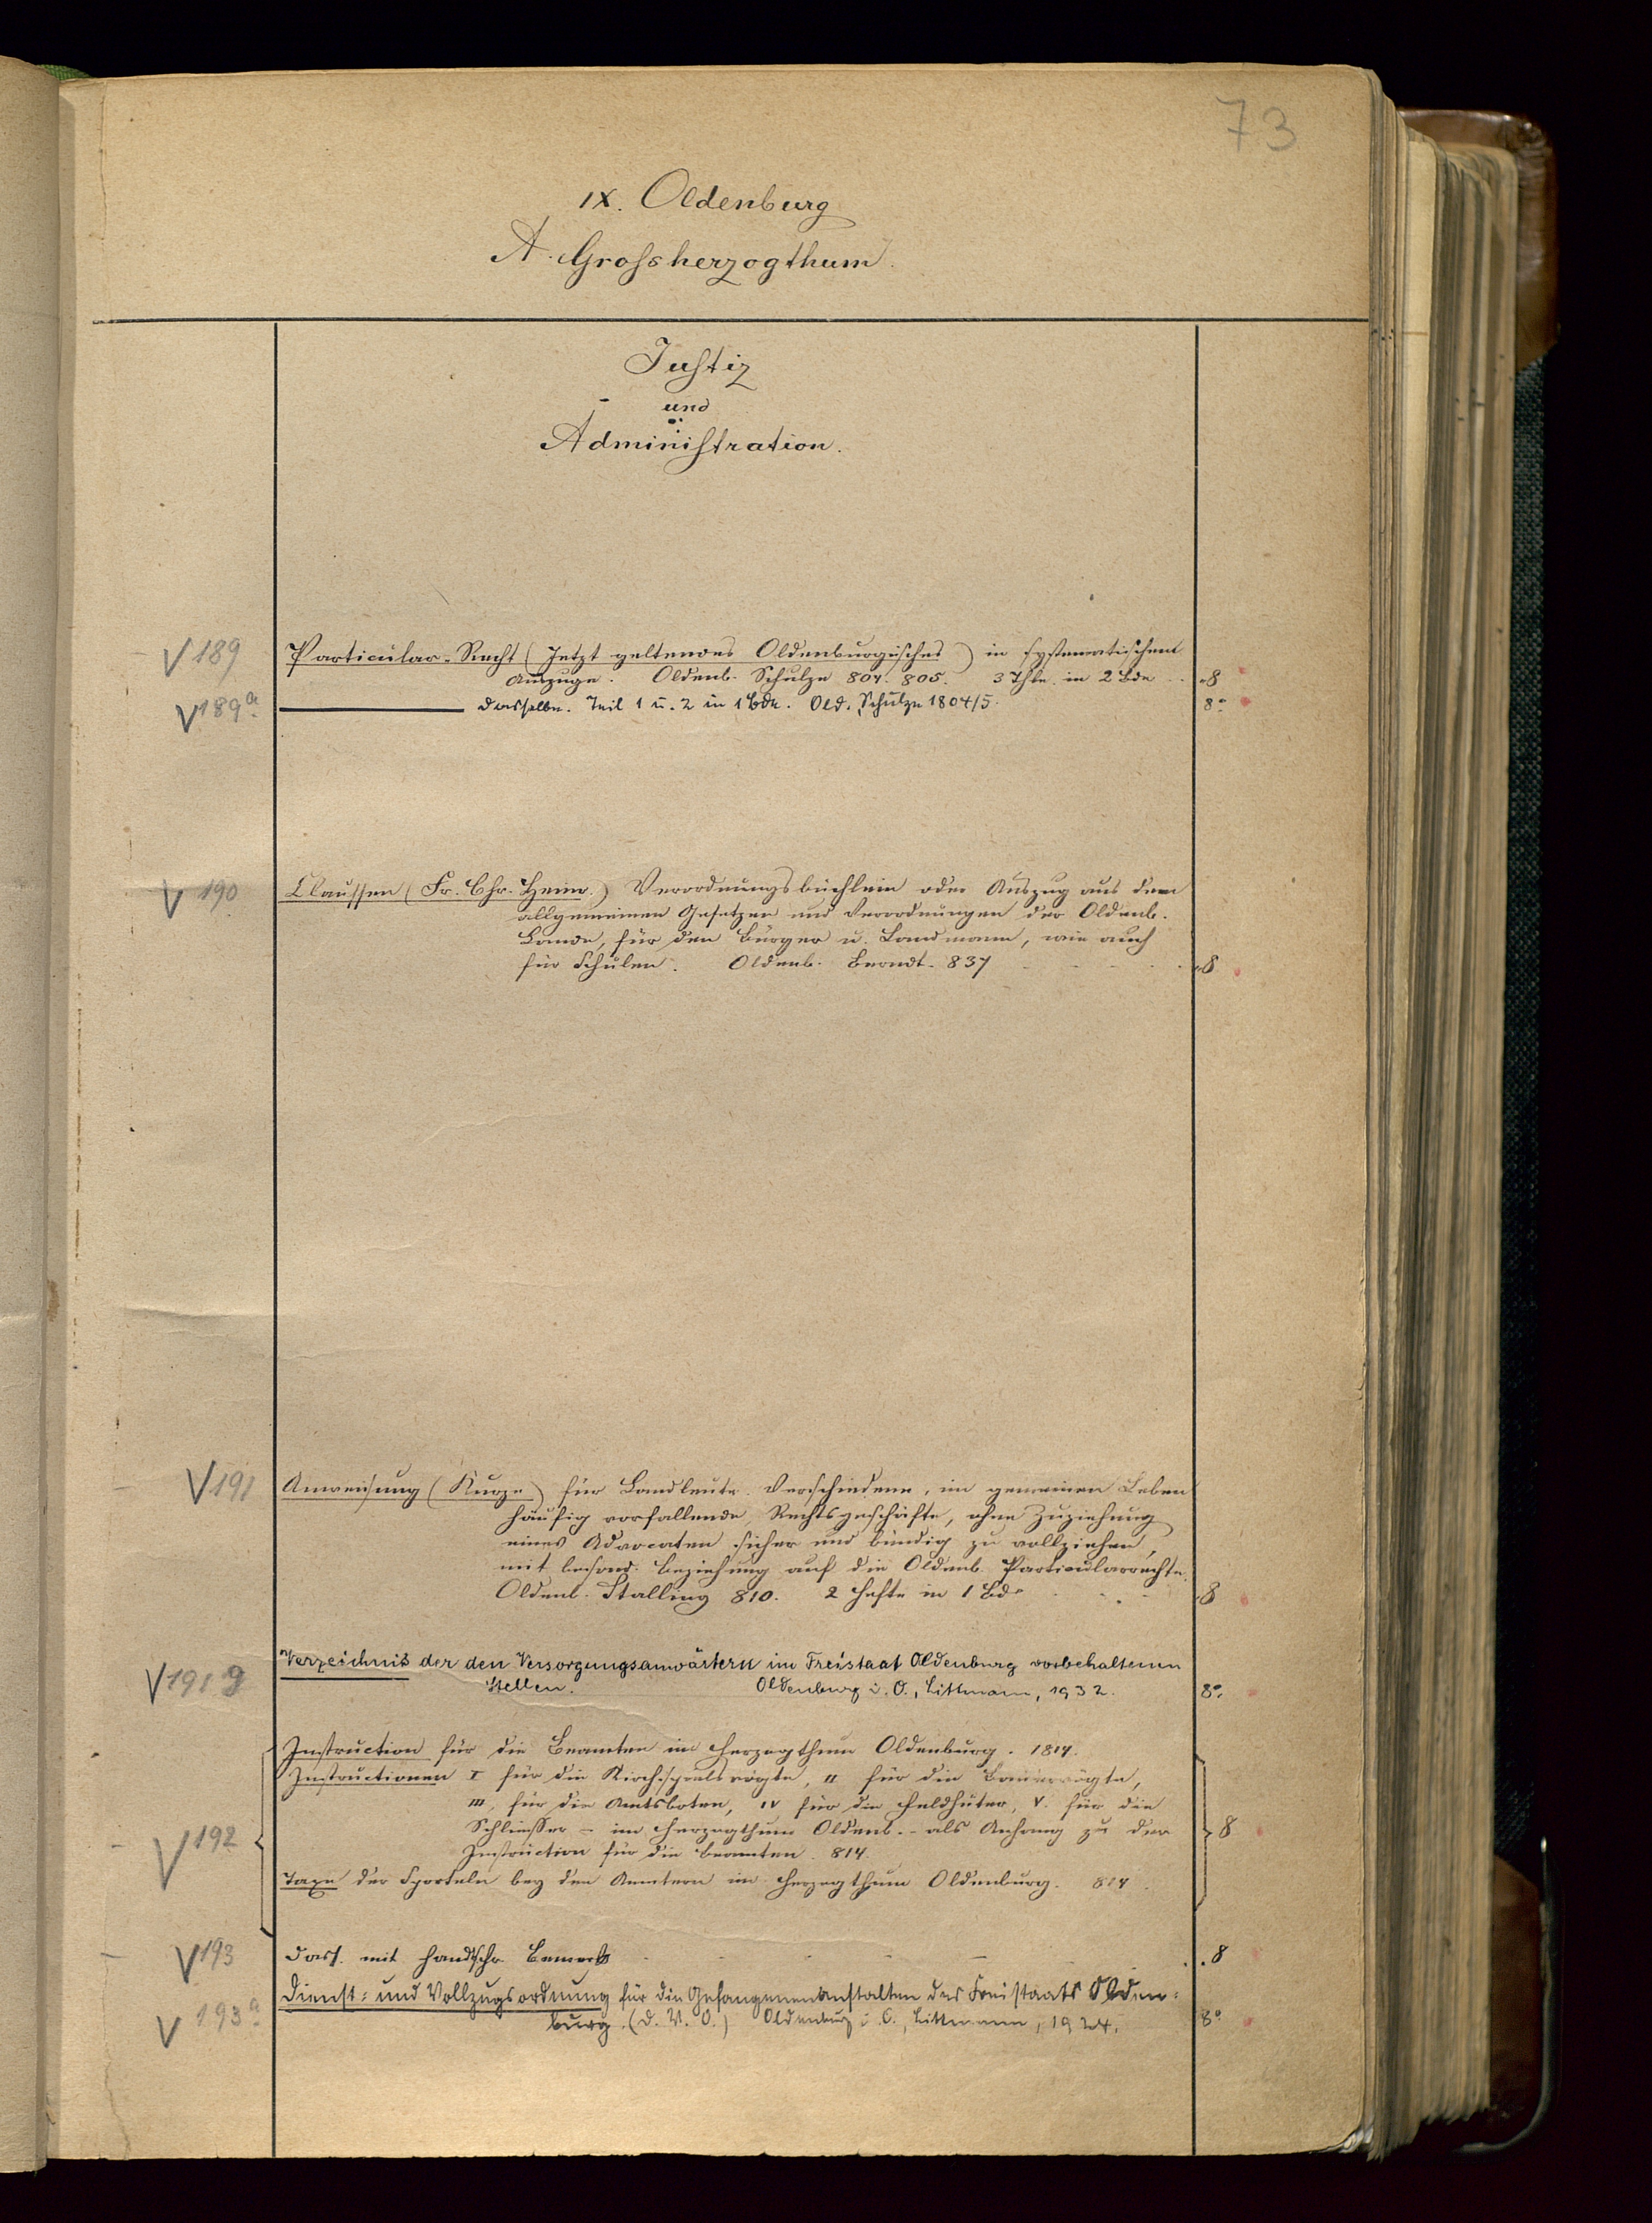 73
IX. Oldenburg
A. Grossherzogthum.
Justiz
und
Administration.
V 189 Particular-Recht (Jetzt geltendes Oldenburgisches) in systematischem
Auszuge. Oldenb. Schulze 804. 805. 3 Thle. in 2 Bde 8
V 189a dasselbe. Teil 1 u. 2 in 1 Bde. Old. Schulze 1804/5. 8°
V 190 Claussen (Fr. Chr. Heinr.) Verordnungsbüchlein oder Auszug aus den
allgemeinen Gesetzen und Verordnungen der Oldenb.
Lande, für den Bürger u. Landmann, wie auch
für Schulen. Oldenb. Berndt. 837 8
V 191 Anweisung (Kurze) für Landleute. Verschiedene, im gemeinen Leben
häufig vorfallende, Rechtsgeschäfte, ohne Zuziehung
eines Advocaten sicher und bündig zu vollziehen,
mit besond. Beziehung auf die Oldenb. Particularrechte.
Oldenb. Stalling 810. 2 Hefte in 1 Bde 8
V 191 g Verzeichnis der den Versorgungsanwärtern im Freistaat Oldenburg vorbehaltenen
Stellen. Oldenburg i. O., Littmann, 1932. 8°
Instruction für die Beamten im Herzogthum Oldenburg. 1814.
Instructionen I für die Kirchspielsvögte, II für die Bauervögte,
III, für die Amtsboten, IV für die Feldhüter, V. für die
Schliesser - im Herzogthum Oldenb. - als Anhang zu der
V 192 Instruction für die Beamten. 814. 8
Taxe der Sporteln bey den Aemtern im Herzogthum Oldenburg. 814.
V 193 Dass. mit handschr. Bemerk 8
V 193a Dienst- und Vollzugsordnung für die Gefangenenanstalten des Freistaats Olden-
burg. (D. V. O.) Oldenburg i. O., Littmann, 1924. 8°